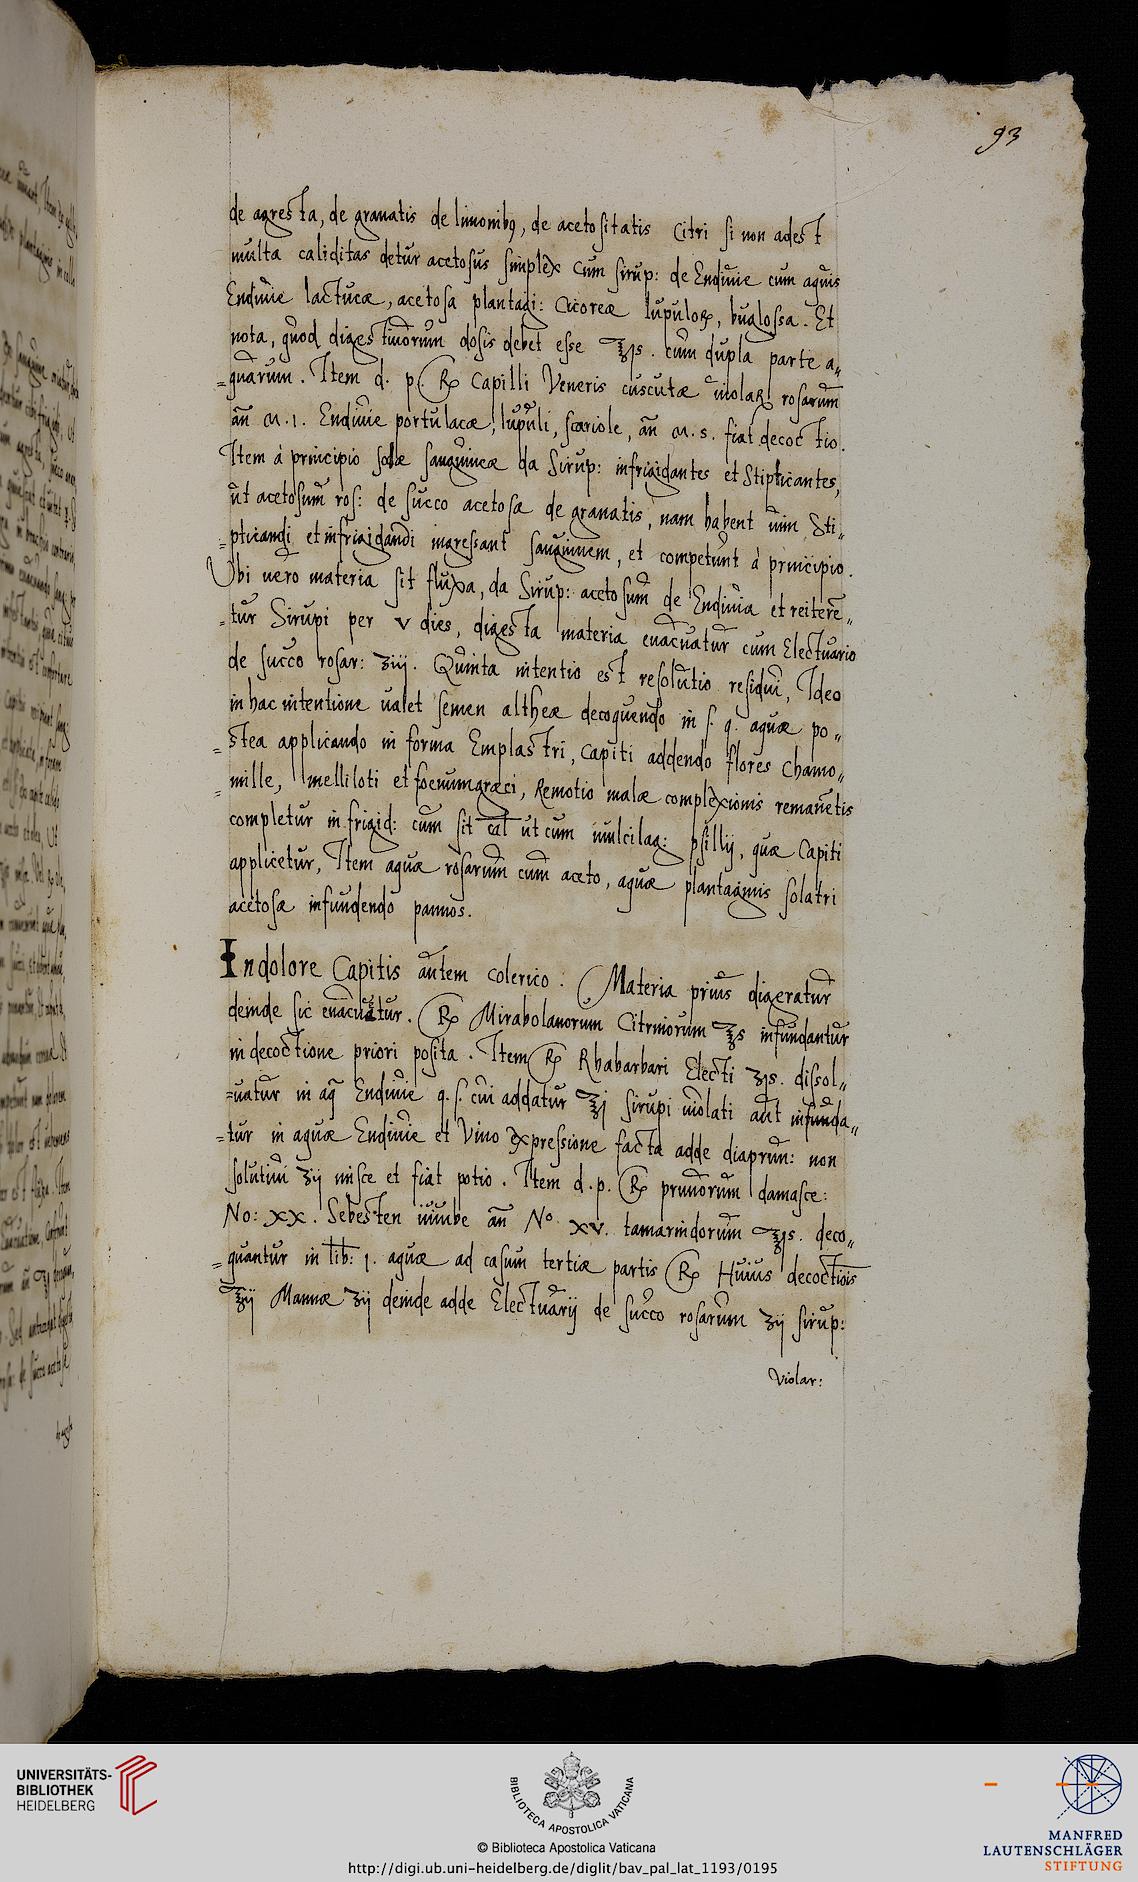 93
de agresta, de granatis de limonibꝯ, de acetositatis Citri si non adest
multa caliditas detur acetosus simplex cum sirup: de Endiuie cum aquis
Endiuie lactucæ, acetosa plantagi: Cicoreæ lupuloꝝ, buglossa. Et
nota, quod digestiuorum dosis debet esse ℥js. cum dupla parte a„
„quarum. Item d. p. ℞ Capilli Veneris cuscutæ uiolaꝝ rosarum
añ M.1. Endiuie portulacæ, lupuli, scariole, añ M.s. fiat decoctio.
Item à principio sodæ sanguineæ da Sirup: infrigidantes et Stipticantes,
ut acetosum ros: de succo acetosæ de granatis, nam habent uim Sti„
„pticandi et infrigidandi ingressant sanguinem, et competunt à principio.
Vbi uero materia sit fluxa, da Sirup: acetosum de Endiuia et reiterẽ„
„tur Sirupi per v dies, digesta materia euacuatur cum Electuario
de succo rosar: ʒiij. Quinta intentio est resolutio residui, Ideo
in hac intentione ualet semen altheæ decoquendo in s. q. aquæ po„
„stea applicando in forma Emplastri, Capiti addendo flores Chamo„
„mille, melliloti et foenumgræci, Remotio malæ complexionis remanẽtis
completur infrigid: cum sit cal ut cum mulcilag: psillij, quæ Capiti
applicetur, Item aquæ rosarum cum aceto, aquæ plantaginis solatri
acetosæ infundendo pannos.
In dolore Capitis autem colerico. Materia prius digeratur
deinde sic euacuatur. ℞ Mirabolanorum Citriniorum ℥s infundantur
in decoctione priori posita. Item ℞ Rhabarbari Electi ʒjs. dissol„
„uatur in aq̃ Endiuie q. s. cui addatur ℥j sirupi uiolati aut infunda„
„tur in aquæ Endiuie et Vino expressione facta adde diaprun: non
solutiui ʒij misce et fiat potio. Item d.p. ℞ prunorum damasce:
No: xx. Sebesten iuiube añ No xv. tamarindorum ℥js. deco„
„quantur in lib: j. aquæ ad casum tertiæ partis ℞ Huius decoctiõis
℥ij Mannæ ʒij deinde adde Electuarij de succo rosarum ʒij sirup:
Violar:
UNIVERSITÄTS-
BIBLIOTHEK
HEIDELBERG
BIBLIOTECA APOSTOLICA VATICANA
© Biblioteca Apostolica Vaticana
http://digi.ub.uni-heidelberg.de/diglit/bav_pal_lat_1193/0195
MANFRED
LAUTENSCHLÄGER
STIFTUNG